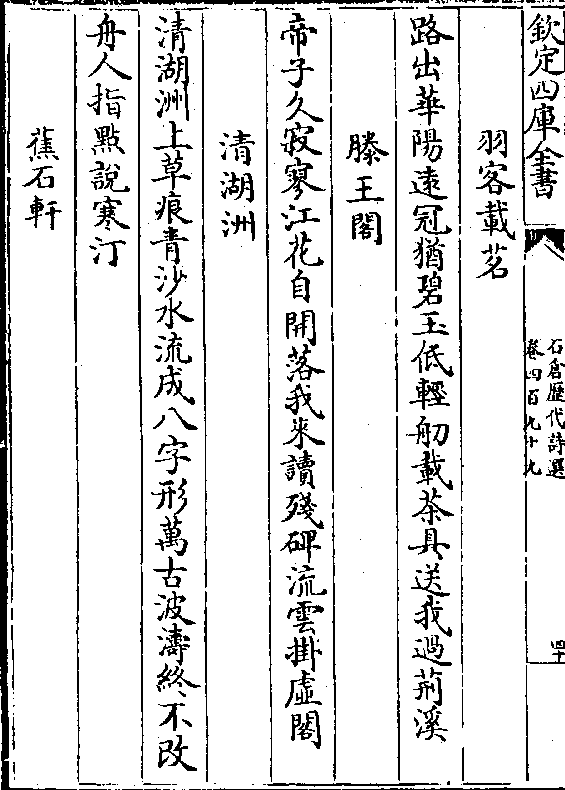 欽定四庫全書
石倉歴代詩選
卷四百九十九
四十
羽客載茗
路出華陽遠冠猶碧玉低輕舠載茶具送我過荊溪
滕王閣
帝子久寂寥江花自開落我來讀殘碑流雲掛虛閣
清湖洲
清湖洲上草痕青沙水流成八字形萬古波濤終不改
舟人指點說寒汀
蕉石軒